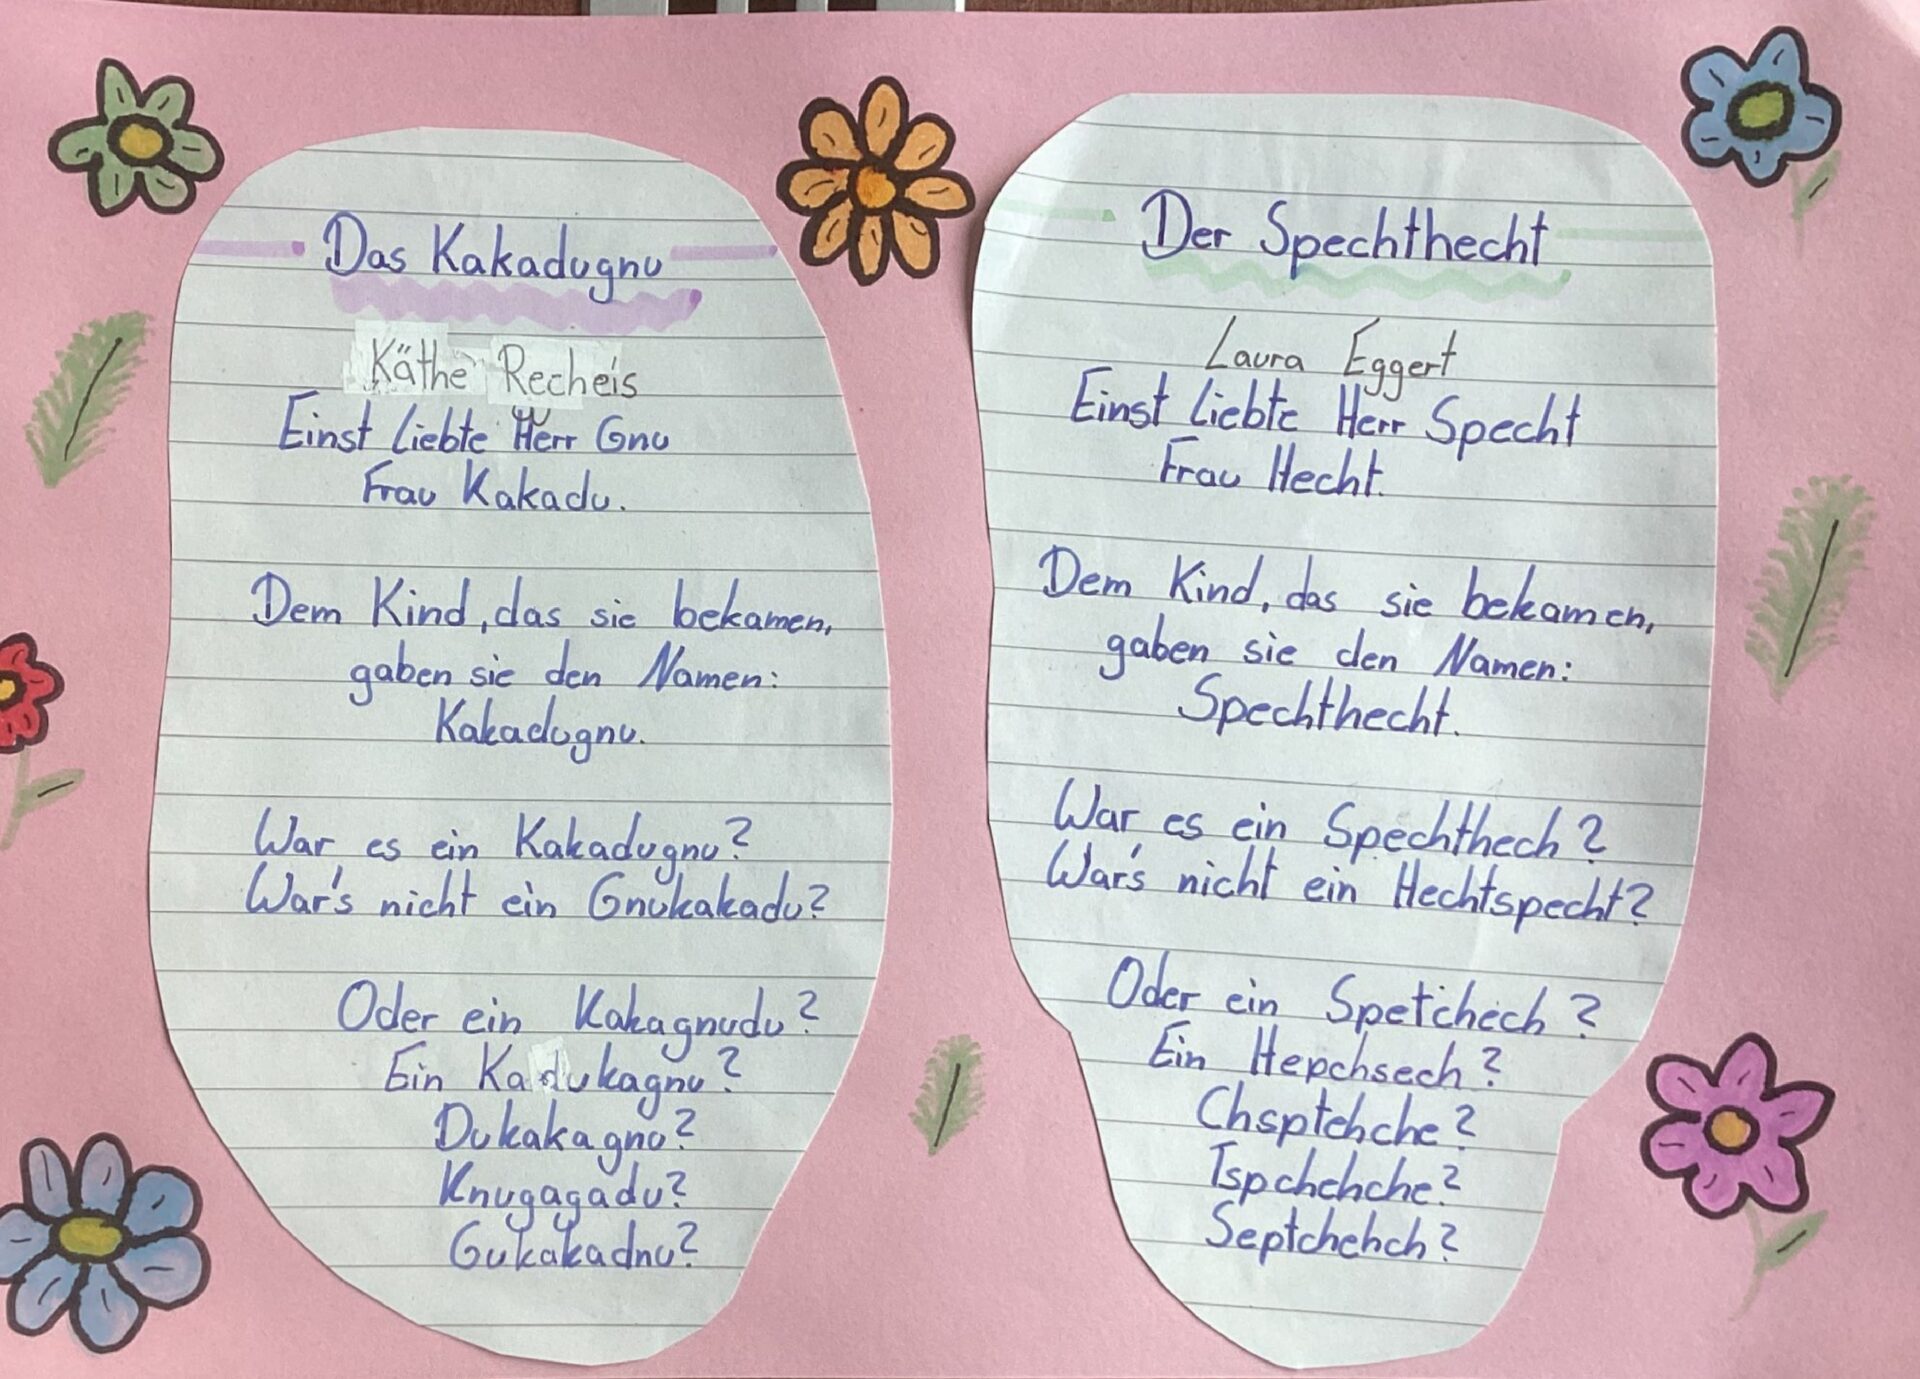 Das Kakadugnu
Käthe Recheis
Einst liebte Herr Gnu
Frau Kakadu.
Dem Kind, das sie bekamen,
gaben sie den Namen:
Kakadugnu.
War es ein Kakadugnu?
War's nicht ein Gnukakadu?
Oder ein Kakagnudu?
Ein Kadukagnu?
Dukakagnu?
Knugagadu?
Gukakadnu?
Der Spechthecht
Laura Eggert
Einst liebte Herr Specht
Frau Hecht.
Dem Kind, das sie bekamen,
gaben sie den Namen:
Spechthecht.
War es ein Spechthech?
War's nicht ein Hechtspecht?
Oder ein Spetchech?
Ein Hepchsech?
Chsptehche?
Tspchehche?
Septchehch?